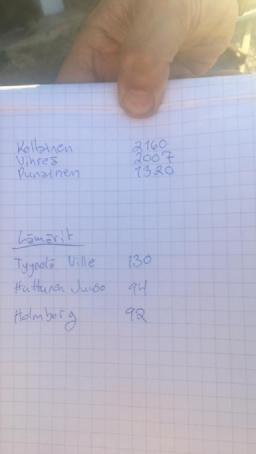 Keltainen 2160
Vihreä 2007
Punainen 1320
Lämärit
Tyynelä Ville 130
Hatturen 94
Holmberg 92